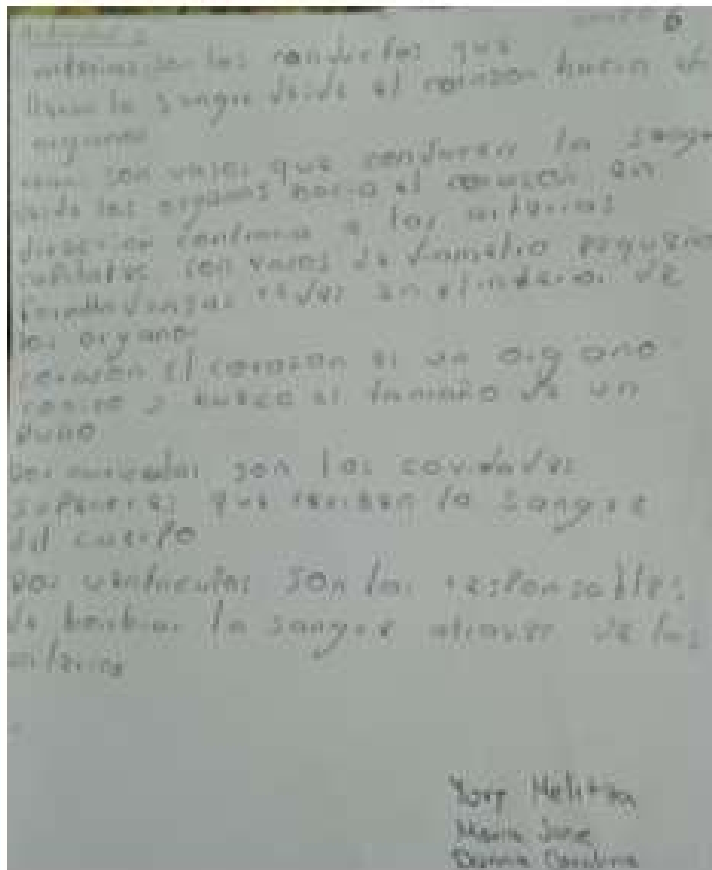 arterias son los conductos que
la sangre desde el corazon hacia
organos
son vasos que conducen la sangre
desde los organos hacia el corazon en
direccion contraria a las arterias
son vasos de diametro pequeño
redes en el interior de
los organos
corazon el corazon es un organo
y hueco el tamaño de un
puño
Dos auriculas son las cavidades
superiores que reciben la sangre
del cuerpo
Dos ventriculos son los responsables
de bombiar la sangre atravez de las
arterias
Maria Jose
Carolina